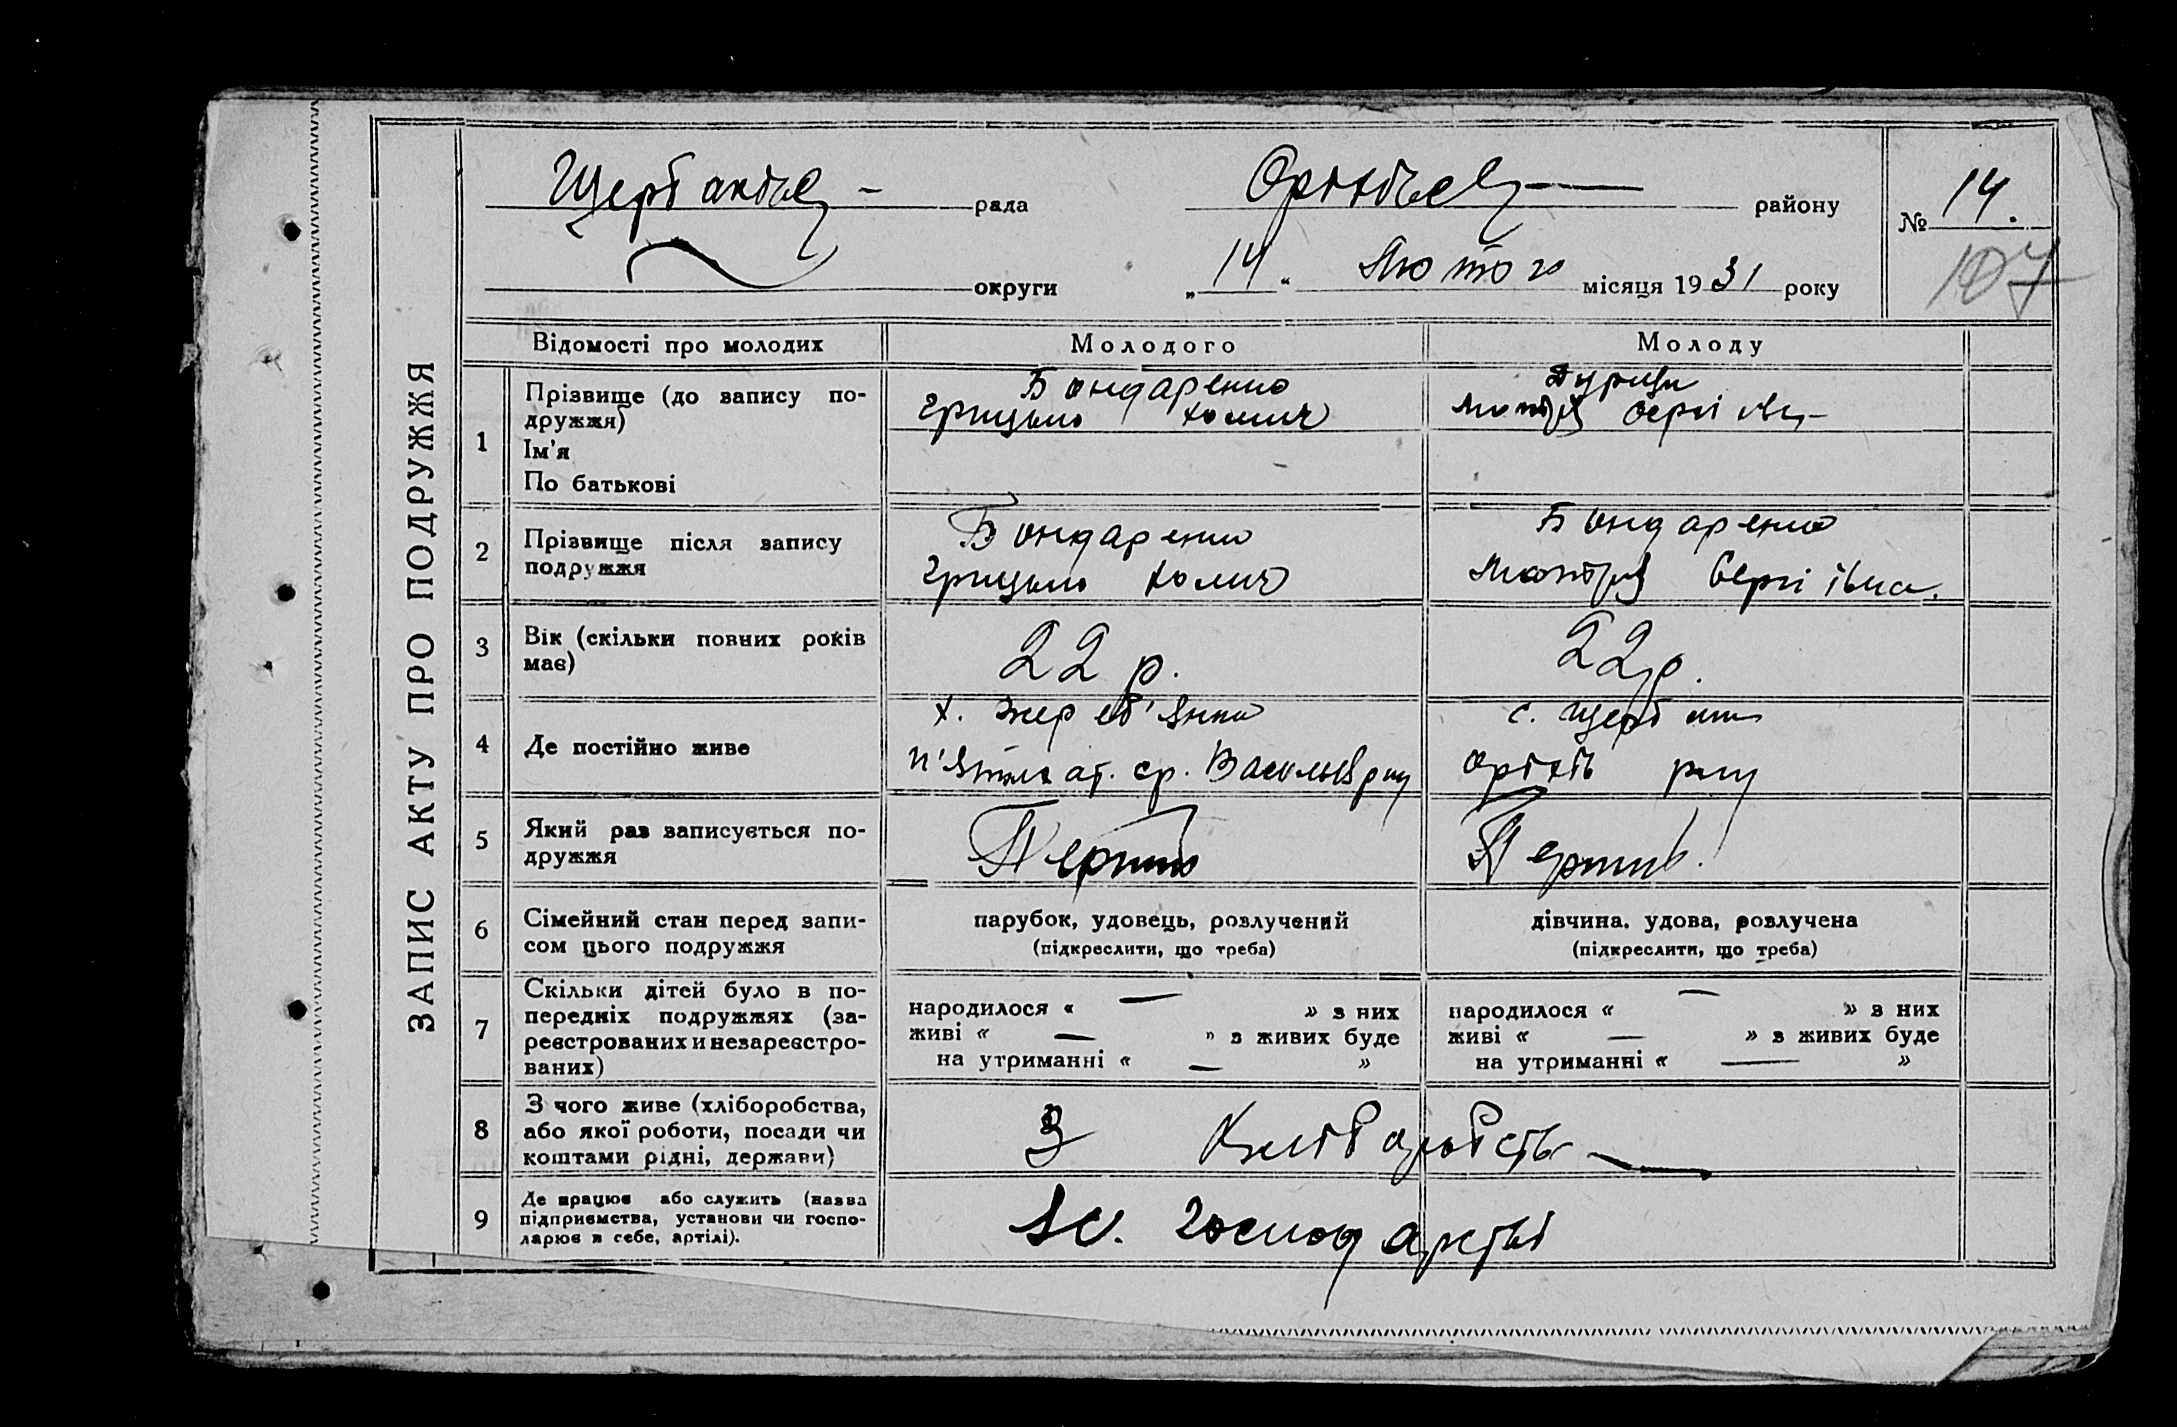 ЗАПИС АКТУ ПРО ПОДРУЖЖЯ
рада
району
№ 14.
107
округи
„ 14 “ Лютого місяця 1931 року
Відомості про молодих
Молодого
Молоду
1
Прізвище (до запису по-
дружжя)
Ім'я
По батькові
Бондаренко
Грицько Хомич
Сергіївн
2
Прізвище після запису
подружжя
Бондаренко
Грицько Хомич
Бондаренко
Мотря Сергіївна.
3
Вік (скільки повних років
має)
22 р.
22 р.
4
Де постійно живе
х. Жереб'янка
с.
5
Який раз записується по-
дружжя
Перший
Перший.
6
Сімейний стан перед запи-
сом цього подружжя
парубок, удовець, розлучений
(підкреслити, що треба)
дівчина, удова, розлучена
(підкреслити, що треба)
7
Скільки дітей було в по-
передніх подружжях (за-
реєстрованих и незареєстро-
ваних)
народилося « — » з них
живі « — » з живих буде
на утриманні « — »
народилося « — » з них
живі « — » з живих буде
на утриманні « — »
8
З чого живе (хліборобства,
або якої роботи, посади чи
коштами рідні, держави)
З
9
Де працює або служить (назва
підприємства, установи чи госпо-
дарює в себе, артілі).
господарстві